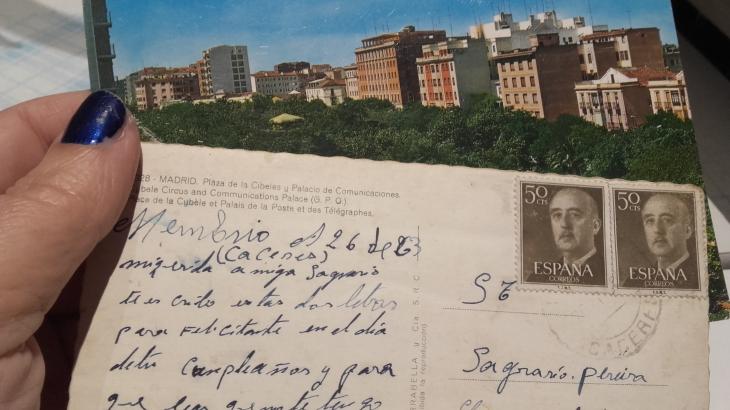 28 - MADRID. Plaza de la Cibeles y Palacio de Comunicaciones.
bele Circus and Communications Palace (G. P. O.)
ace de la Cybèle et Palais de la Poste et des Télégraphes.
Membrio 26 de
(Caceres)
mi querida amiga Sagrario
te escribo estas dos letras
para Felicitarte en el dia
de tu Cumpleaños y para
que
50
CTS
ESPAÑA
CORREOS
50
CTS
ESPAÑA
CORREOS
CACERES
RRABELLA y Cía S.R.C.
bida la reproducción)
Sagrario pereira